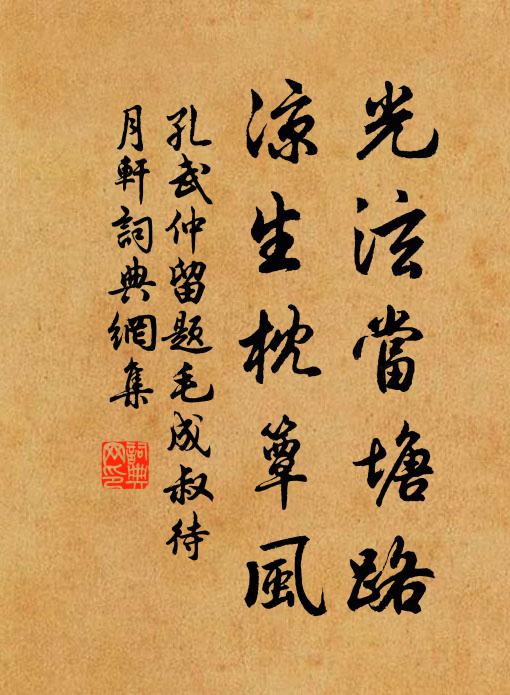 光泫當塘路
凉生枕簟風
孔武仲留題毛成叔待
月軒詞典網集
詞典網印